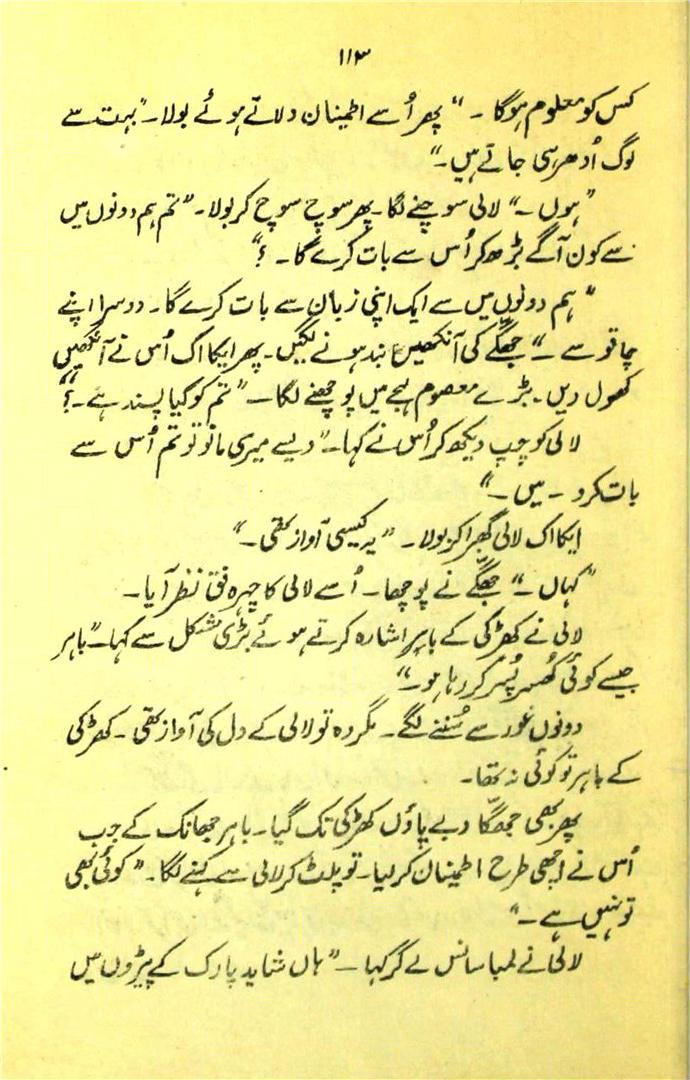 ۱۱۳
کس کو معلوم ہوگا ۔ “ پھر اُسے اطمینان دلاتے ہوئے بولا۔ ”بہت سے
لوگ اُدھر ہی جاتے ہیں۔“
”ہوں ۔“ لالی سوچنے لگا۔ پھر سوچ سوچ کر بولا۔ ”تم ہم دونوں میں
سے کون آگے بڑھ کر اُس سے بات کرے گا ۔ ؟“
”ہم دونوں میں سے ایک اپنی زبان سے بات کرے گا۔ دوسرا اپنے
چاقو سے ۔“ جھگے کی آنکھیں بند ہونے لگیں۔ پھر ایکا اک اُس نے آنکھیں
کھول دیں۔ بڑے معصوم لہجے میں پوچھنے لگا ۔ ”تم کو کیا پسند ہے ۔ ؟“
لالی کو چپ دیکھ کر اُس نے کہا۔ ”ویسے میری مانو تو تم اُس سے
بات کرو ۔ میں ۔“
ایکا اک لالی گھبرا کر بولا ۔ ”یہ کیسی آواز تھی ۔“
”کہاں ۔“ جھگّے نے پوچھا ۔ اُسے لالی کا چہرہ فق نظر آیا ۔
لالی نے کھڑکی کے باہر اشارہ کرتے ہوئے بڑی مشکل سے کہا۔ ”باہر
جیسے کوئی کُھسر پُسر کر رہا ہو ۔“
دونوں غور سے سُننے لگے ۔ مگر وہ تو لالی کے دل کی آواز تھی ۔ کھڑکی
کے باہر تو کوئی نہ تھا ۔
پھر بھی جھگّا دبے پاؤں کھڑکی تک گیا ۔ باہر جھانک کے جب
اُس نے اچھی طرح اطمینان کر لیا ۔ تو پلٹ کر لالی سے کہنے لگا ۔ ”کوئی بھی
تو نہیں ہے ۔“
لالی نے لمبا سانس لے کر کہا ۔ ”ہاں شاید پارک کے پیڑوں میں